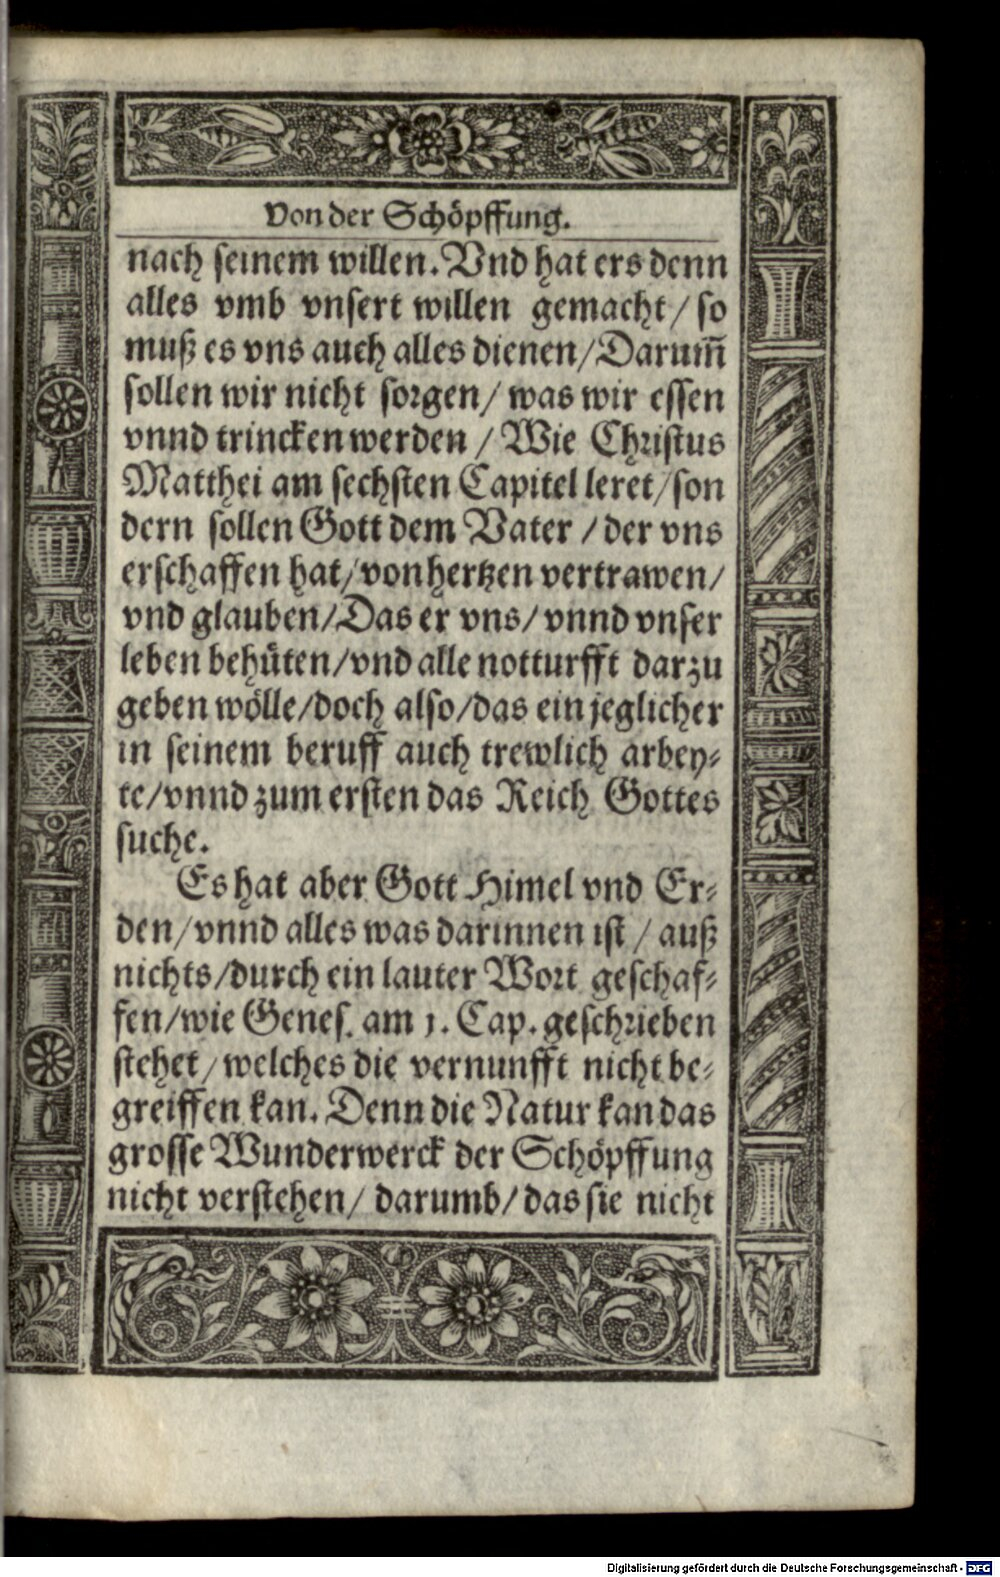 Von der Schöpffung.
nach seinem willen. Vnd hat ers denn
alles vmb vnsert willen gemacht / so
muß es vns auch alles dienen / Darum̅
sollen wir nicht sorgen / was wir essen
vnnd trincken werden / Wie Christus
Matthei am sechsten Capitel leret / son
dern sollen Gott dem Vater / der vns
erschaffen hat / von hertzen vertrawen /
vnd glauben / Das er vns / vnnd vnser
leben behüten / vnd alle notturfft darzu
geben wölle / doch also / das ein jeglicher
in seinem beruff auch trewlich arbey⸗
te / vnnd zum ersten das Reich Gottes
suche.
Es hat aber Gott Himel vnd Er⸗
den / vnnd alles was darinnen ist / auß
nichts / durch ein lauter Wort geschaf⸗
fen / wie Genes. am 1. Cap. geschrieben
stehet / welches die vernunfft nicht be⸗
greiffen kan. Denn die Natur kan das
grosse Wunderwerck der Schöpffung
nicht verstehen / darumb / das sie nicht
Digitalisierung gefördert durch die Deutsche Forschungsgemeinschaft - DFG